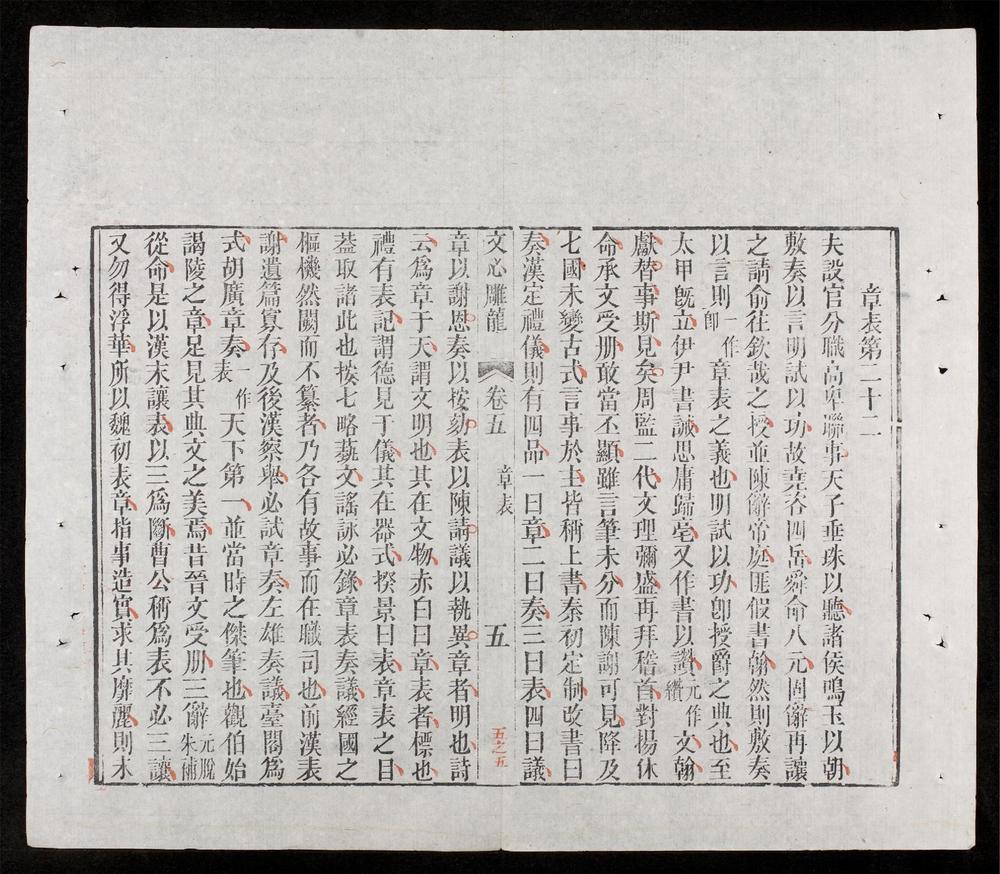 章表第二十二
夫設官分職高卑聯事天子垂珠以聽諸侯鳴玉以朝
敷奏以言明試以功故堯咨四岳舜命八元固辭再讓
之請俞往欽哉之授並陳辭帝庭匪假書翰然則敷奏
以言則一作即章表之義也明試以功卽授爵之典也至
太甲旣立伊尹書誡思庸歸亳又作書以讚元作纘文翰
獻替事斯見矣周監二代文理彌盛再拜稽首對揚休
命承文受册敢當丕顯雖言筆未分而陳謝可見降及
七國未變古式言事於主皆稱上書秦初定制改書曰
奏漢定禮儀則有四品一曰章二曰奏三曰表四曰議
文心雕龍 卷五 章表 五 五之五
章以謝恩奏以按劾表以陳請議以執異章者明也詩
云爲章于天謂文明也其在文物赤白曰章表者標也
禮有表記謂德見于儀其在器式揆景曰表章表之目
葢取諸此也按七略藝文謠詠必錄章表奏議經國之
樞機然闕而不纂者乃各有故事而在職司也前漢表
謝遺篇寡存及後漢察舉必試章奏左雄奏議臺閣爲
式胡廣章奏一作表天下第一並當時之傑筆也觀伯始
謁陵之章足見其典文之美焉昔晉文受册三辭元脫朱補
從命是以漢末讓表以三爲斷曹公稱爲表不必三讓
又勿得浮華所以魏初表章指事造實求其靡麗則未